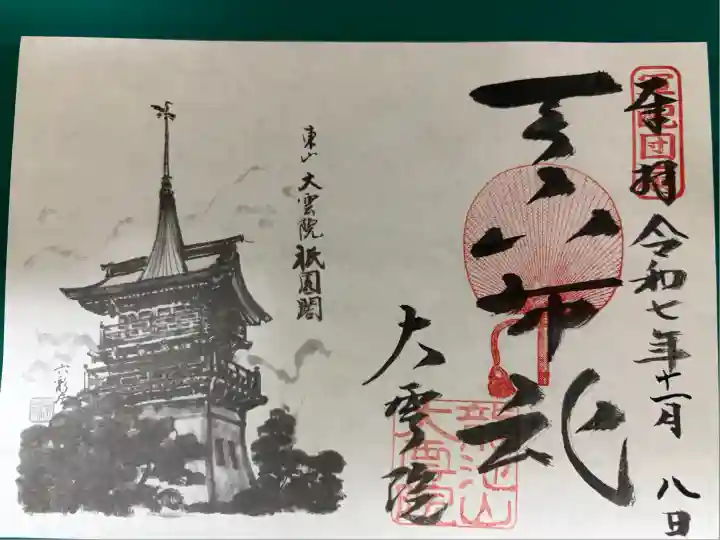 奉拝
令和七年十一月八日
天下布武
大雲院
龍池山
大雲院
東山 大雲院 祇園閣